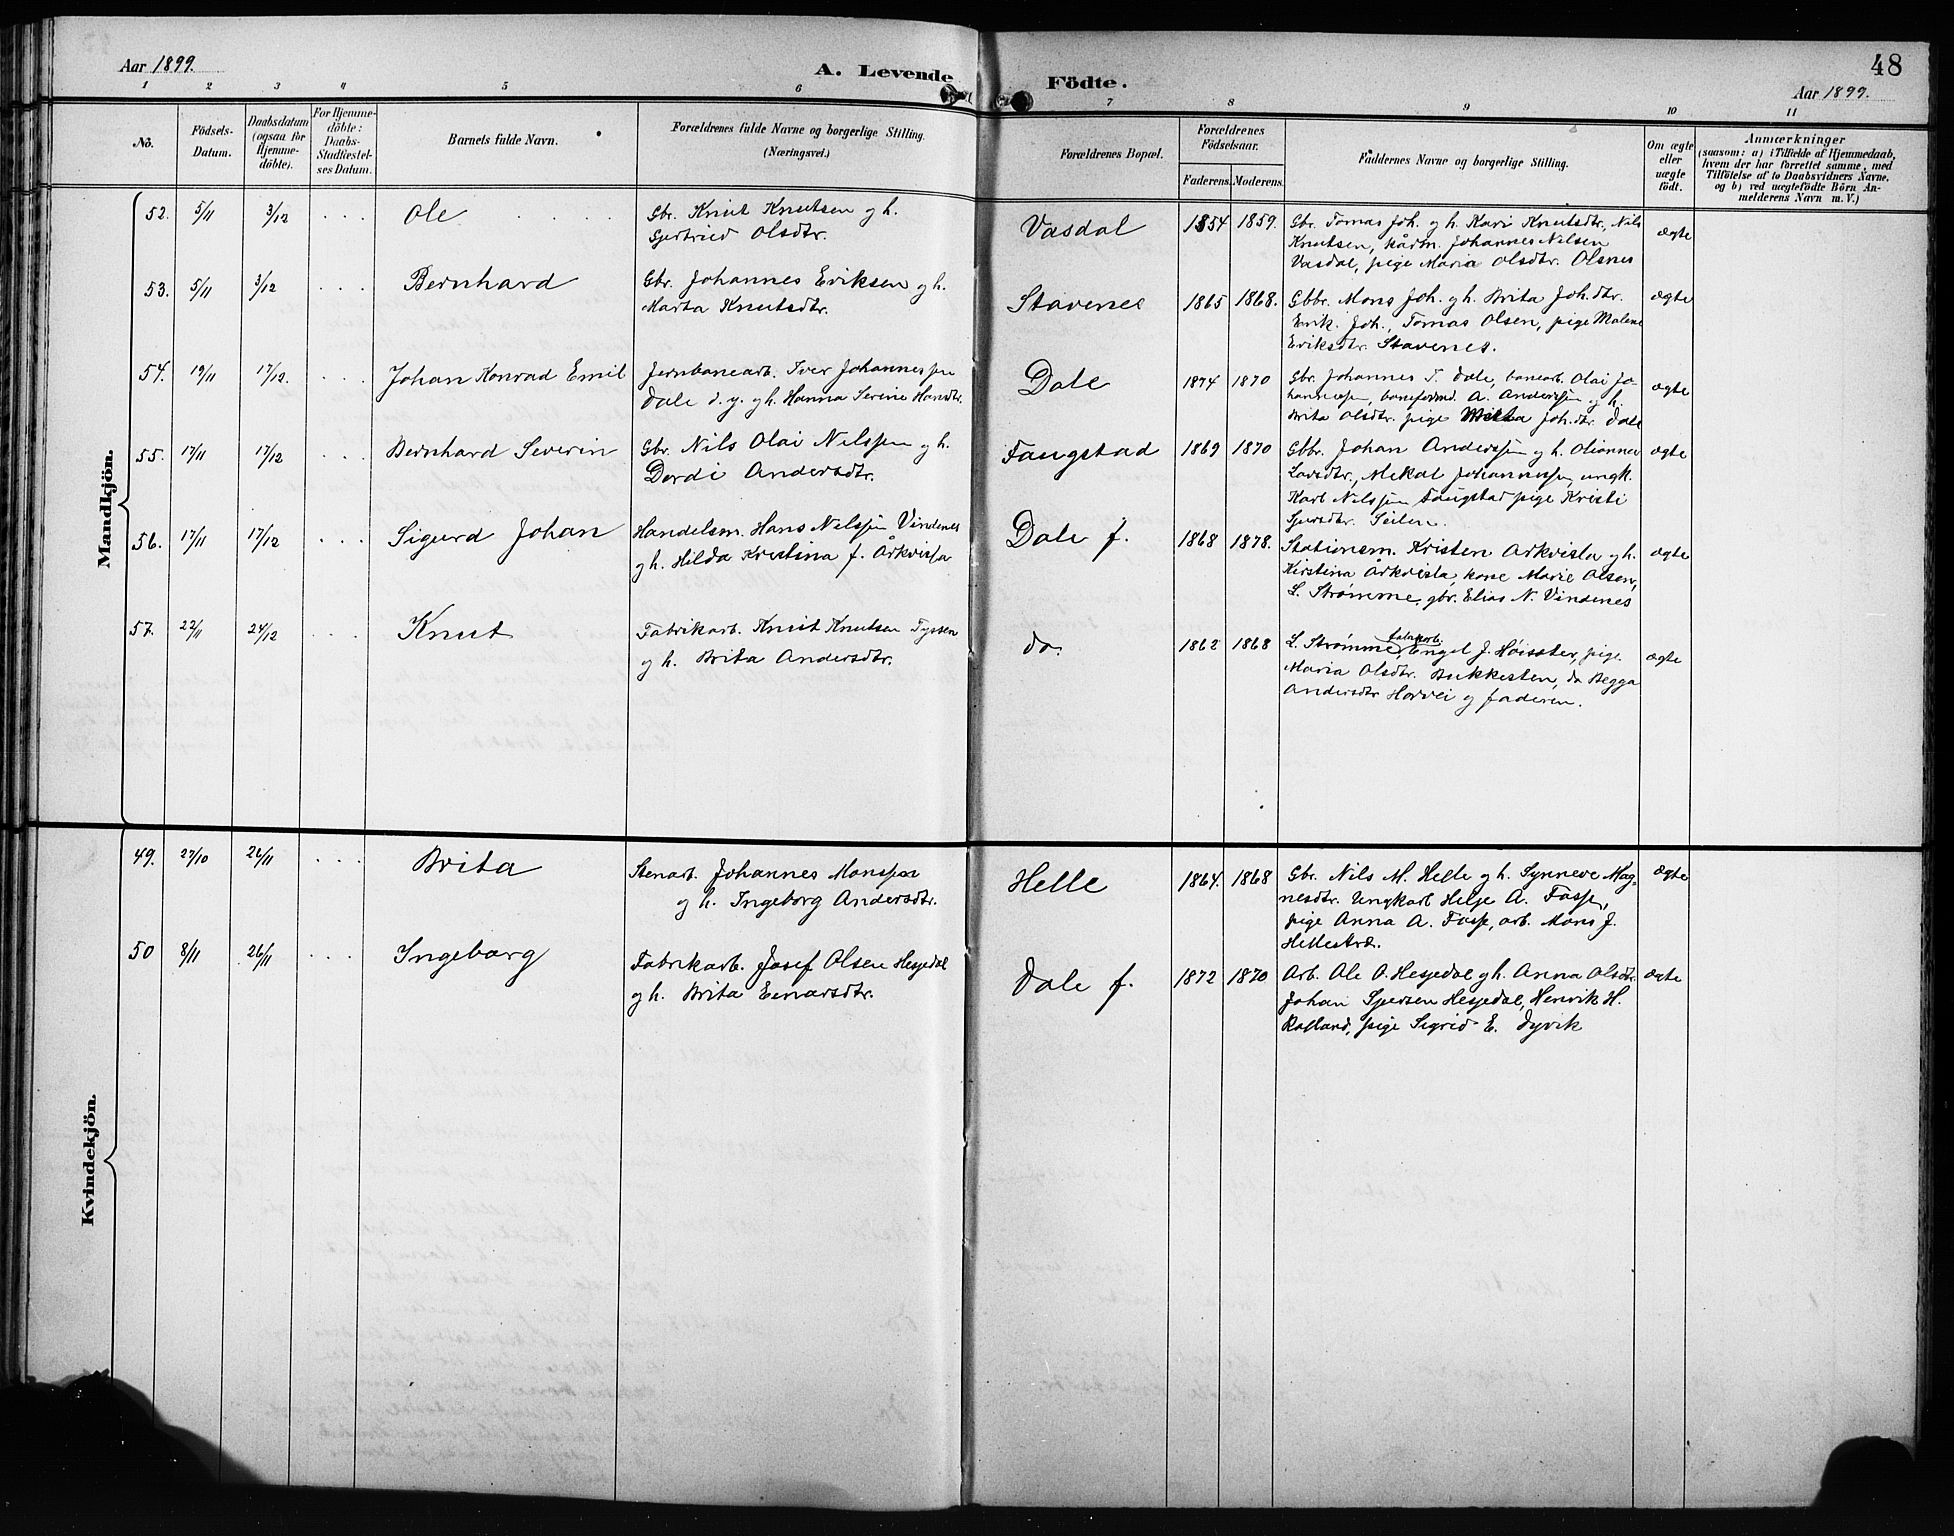 Aar 1899.
A. Levende Födte.
48
Aar 1899.
1 2 3 4 5 6 7 8 9 10 11
No.
Födsels-Datum.
Daabsdatum (ogsaa for Hjemme-döbte).
For Hjemme-döbte: Daabs-Stadfæstel-ses Datum.
Barnets fulde Navn.
Forældrenes fulde Navne og borgerlige Stilling. (Næringsvei.)
Forældrenes Bopæl.
Forældrenes Födselsaar.
Faderens. Moderens.
Faddernes Navne og borgerlige Stilling.
Om ægte eller uægte födt.
Anmærkninger
(saasom: a) i Tilfælde af Hjemmedaab, hvem der har forrettet samme, med Tilföielse af to Daabsvidners Navne, og b) ved uægtefödte Börn An-melderens Navn m. V.)
Mandkjön.
52. 5/11 3/12 . . . Ole
Gbr. Knut Knutsen g h.
Gjertried Olsdtr.
Vasdal 1854 1859.
Gbr. Tomas Joh. g h. Kari Knutsdtr, Nils
Knutsen, kårm. Johannes Nilsen
Vasdal, pige Maria Olsdtr. Olsnes
ægte
53. 5/11 3/12 . . . Bernhard
Gbr. Johannes Eriksen g h.
Marta Knutsdtr.
Stavenes 1865 1868.
Gbbr. Mons Joh. g h. Brita Joh.dtr.
Erik. Joh., Tomas Olsen, pige Malene
Eriksdtr. Stavenes.
ægte
54. 19/11 17/12. . . . Johan Konrad Emil
Jernbanearb. Iver Johannessen
Dale d. y. g h. Hanna Serine Hansdtr.
Dale 1874 1870
Gbr. Johannes T. Dale, banearb. Olai Jo-
hannessen, baneformd. A. Anderssen g h.
Brita Olsdtr. pige Joh.dtr. Dale
ægte
55. 17/11 17/12 . . . Bernhard Severin
Gbr. Nils Olai Nilssen g h.
Dordi Andersdtr.
Fangstad 1869 1870
Gbbr. Johan Anderssen g h. Olianna
Larsdtr, Mikal Johannessen, ungk.
Karl Nilssen Fangstad pige Kristi
Sjursdtr. Seilen.
ægte
56. 17/11 17/12 . . . Sigurd Johan
Handelsm. Hans Nilssen Vindenes
g h. Hilda Kristina f. Årkvisla
Dale f. 1868 1878.
Stationsm. Kristen Arkvisla g h.
Kirstina Årkvisla, kone Marie Olsen,
L. Strømme, gbr. Elias N. Vindenes
ægte
57. 22/11 24/12 . . . Knut
Fabrikarb. Knut Knutsen Tyssen
g h. Brita Andersdtr.
do. 1862 1868
fabrikarb.
L. Strømme, Engel J. Høisæter, pige
Maria Olsdtr. Bukkesten, do Begga
Andersdtr Horvei g faderen.
ægte
Kvindekjön.
49. 27/10 26/11 . . . Brita
Stenarb. Johannes Monssen
g h. Ingeborg Andersdtr.
Helle 1864. 1868
Gbr. Nils M. Helle g h. Synneve Mag-
nesdtr. Ungkarl Helje A. Fosse,
pige Anna A. Fosse, arb. Mons J.
Hellestræ.
ægte
50 8/11 26/11 . . . Ingeborg
Fabrikarb. Josef Olsen Hesjedal
g h. Brita Einarsdtr.
Dale f. 1872 1870
Arb. Ole O. Hesjedal g h. Anna Olsdtr.
Johan Sjursen Hesjedal, Henrik H.
Rolland, pige Sigrid E. Dyvik
ægte